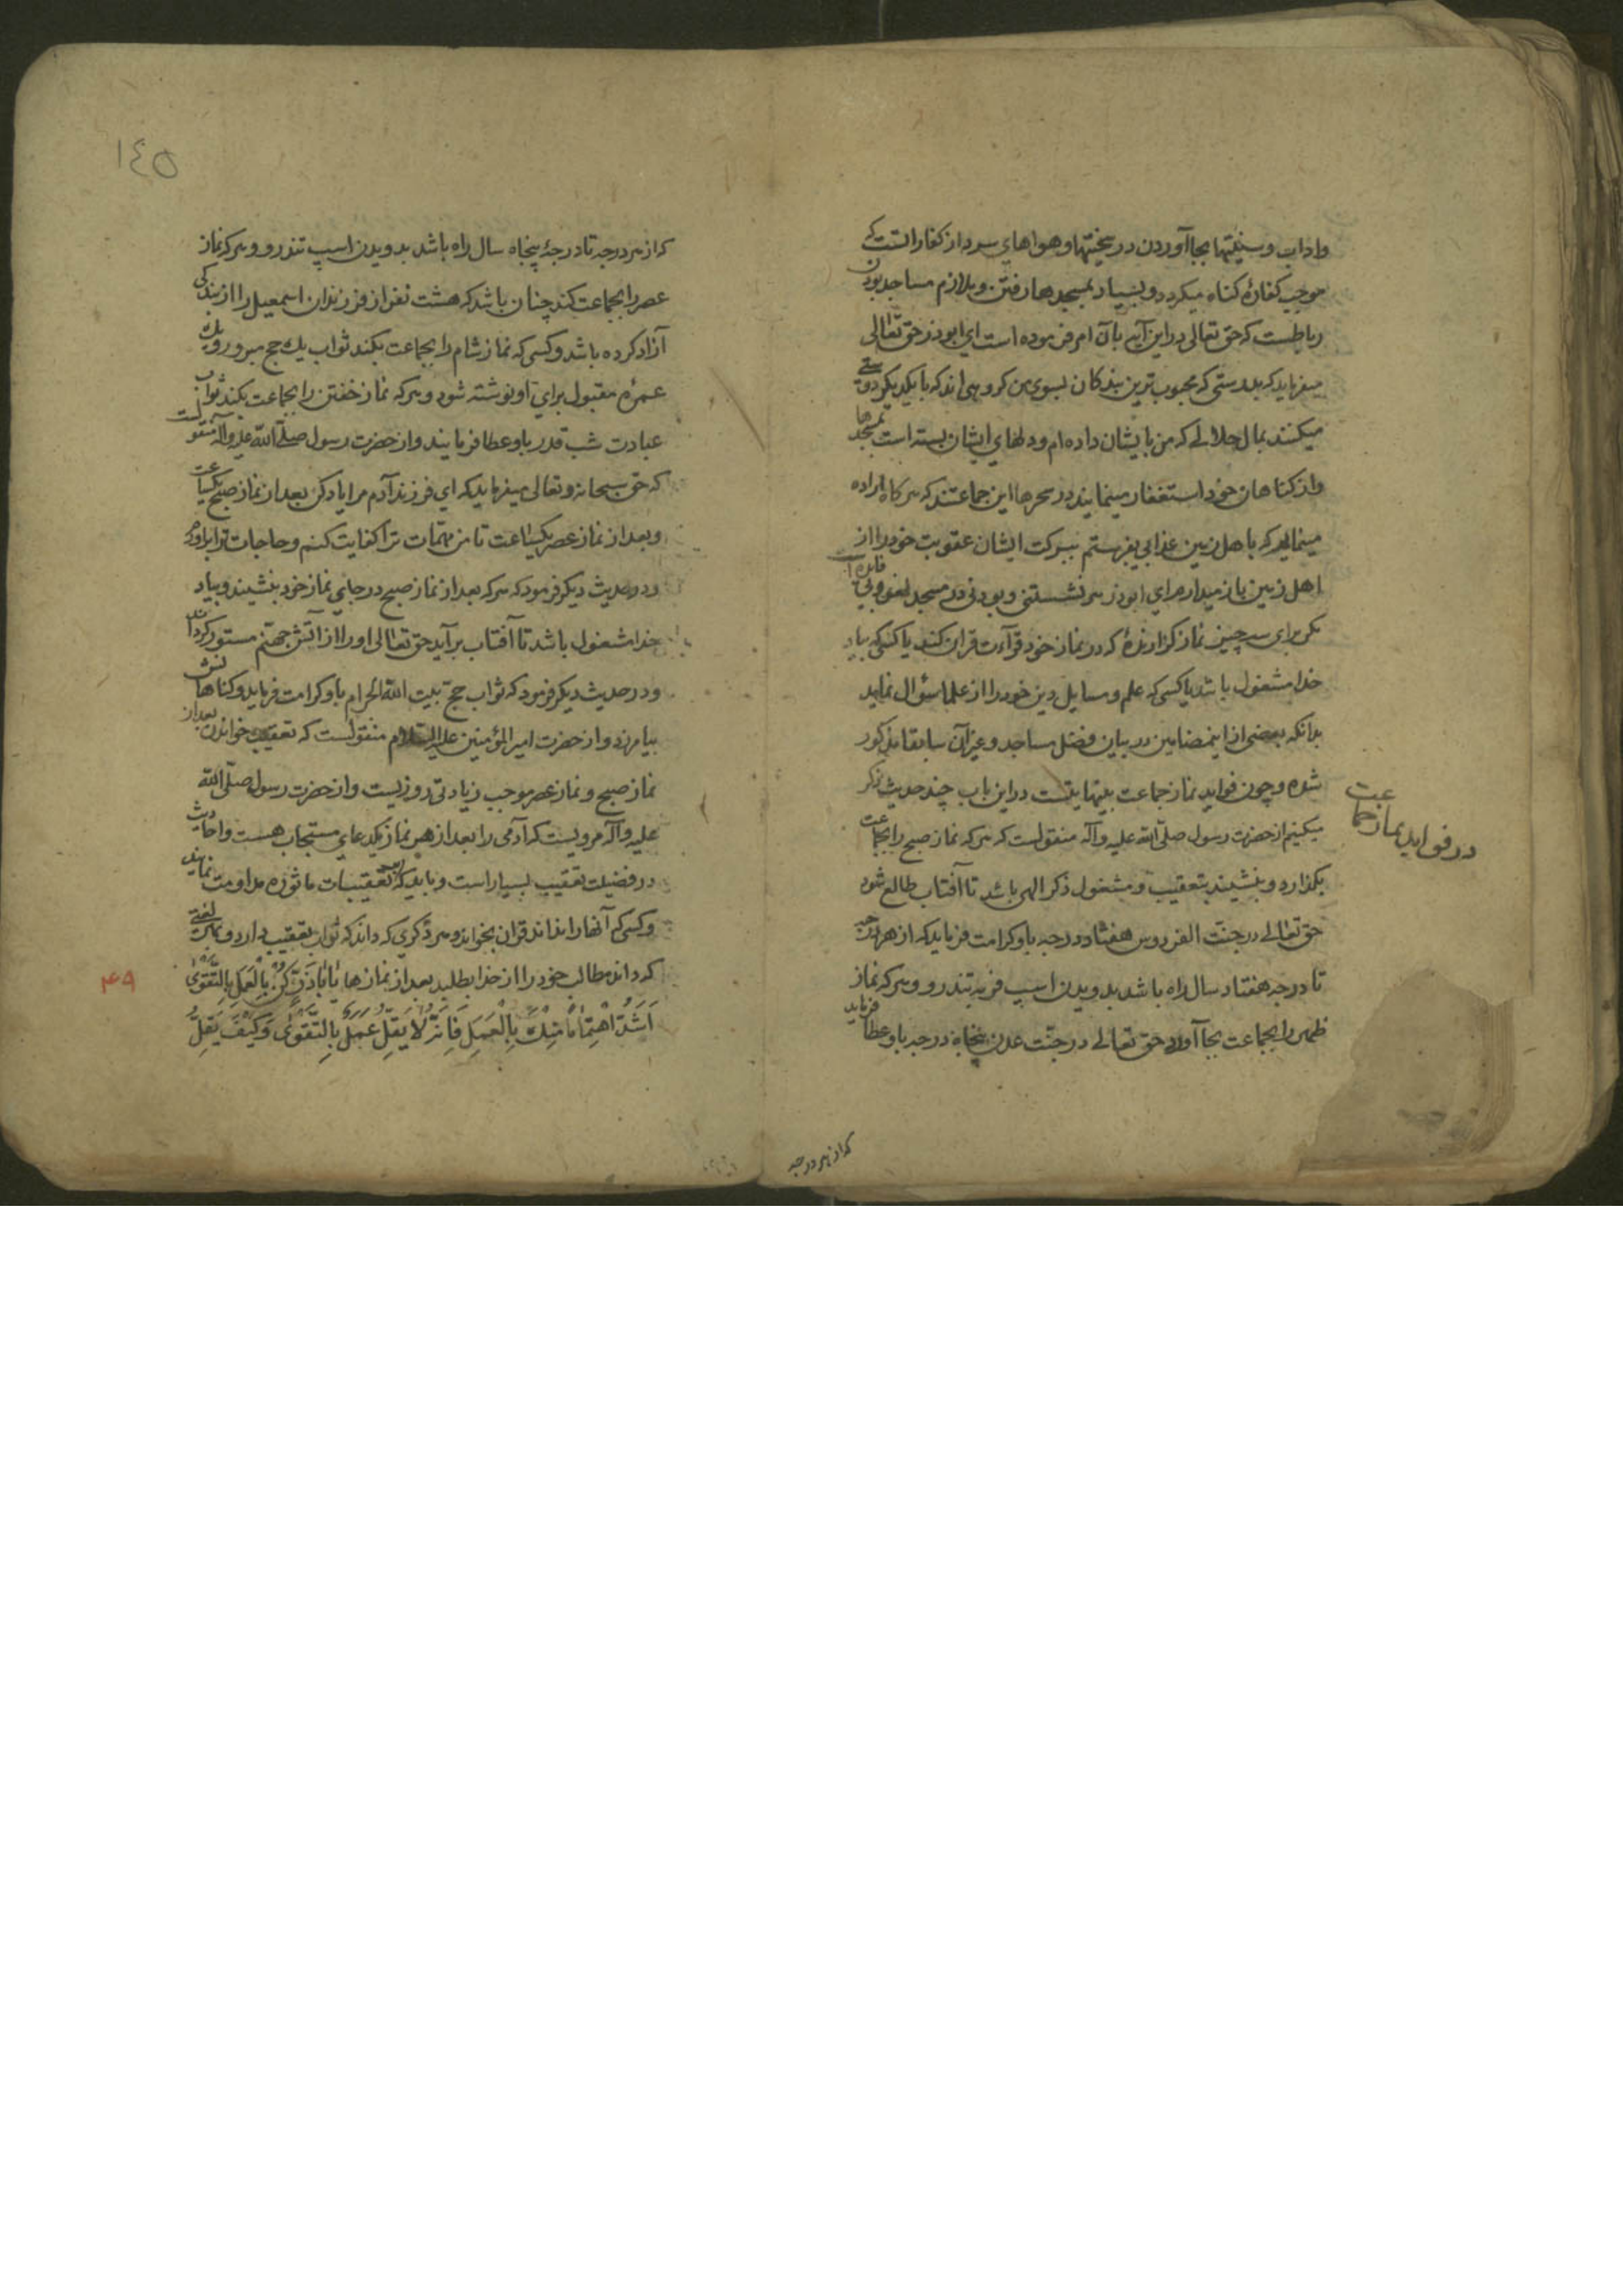 واداب وسنتها بجا آوردن در سختیها و هواهای سرد از کفاراتست که
موجب کفارهٔ کناه میکردد و بسیار بمسجدها رفتن و ملازم مساجد بودن
رباطست که حق تعالی در این آیه بآن امر فرموده است ای ابوذر حق تعالی
میفرماید که بدرستی که محبوب ترین بندکان بسوی من کروهی اند که با یکدیکر دوستی
میکنند بمال حلالی که من بایشان داده ام و دلهای ایشان بسته است بمسجدها
و از کناهان خود استغفار مینمایند در سحرها این جماعتند که هرکاه اراده
مینمایم که باهل زمین عذابی بفرستم ببرکت ایشان عقوبت خود را از
اهل زمین باز میدارم ای ابوذر هر نشستنی و بودنی در مسجد لغو و بی فایده است
مکر برای سه چیز نماز کزارندهٔ که در نماز خود قرآءت قران کند یا کسی که بیاد
خدا مشغول باشد یا کسی که علم و مسایل دین خود را از علما سؤال نماید
بدانکه بعضی از اینمضامین در بیان فضل مساجد و غیر آن سابقا مذکور
شده و چون فواید نماز جماعت بینهایتست در این باب چند حدیث ذکر
میکنیم از حضرت رسول صلّی الله علیه و آله منقولست که هر که نماز صبح را بجماعت
بکذارد و بنشیند بتعقیب و مشغول ذکر الهی باشد تا آفتاب طالع شود
حق تعالی در جنت الفردوس هفتاد درجه باو کرامت فرماید که از هر درجه
تا درجه هفتاد سال راه باشد بدویدن اسب فربه تندرو و هر که نماز
ظهر را بجماعت بجا آورد حق تعالی در جنّت عدن پنجاه درجه باو عطا فرماید
در فواید نماز جماعت
که از هر درجه
١٤٥
که از هر درجه تا درجهٔ پنجاه سال راه باشد بدویدن اسپ تندرو و هر که نماز
عصر را بجماعت کند چنان باشد که هشت نفر از فرزندان اسمعیل را از بندکی
آزاد کرده باشد و کسی که نماز شام را بجماعت بکند ثواب یك حج مبرور و یك
عمرهٔ مقبول برای او نوشته شود و هر که نماز خفتن را بجماعت بکند ثواب
عبادت شب قدر باو عطا فرمایند و از حضرت رسول صلّی الله علیه و آله منقولست
که حق سبحانه و تعالی میفرماید که ای فرزند آدم مرا یاد کن بعد از نماز صبح یکساعت
و بعد از نماز عصر یکساعت تا من مهمّات ترا کفایت کنم و حاجات ترا برآورم
و در حدیث دیکر فرمود که هر که بعد از نماز صبح در جای نماز خود بنشیند و بیاد
خدا مشغول باشد تا آفتاب برآید حق تعالی او را از آتش جهنّم مستور کرداند
و در حدیث دیکر فرمود که ثواب حج بیت الله الحرام باو کرامت فرماید و کناهانش
بیامرزد و از حضرت امیر المؤمنین علیه السّلام منقولست که تعقیب خواندن بعد از
نماز صبح و نماز عصر موجب زیادتی روزیست و از حضرت رسول صلّی الله
علیه و آله مرویست که آدمی را بعد از هر نماز یکدعای مستجاب هست و احادیث
در فضیلت تعقیب بسیار است و باید که بتعقیبات ماثوره مداومت نمایند
و کسی که آنها را نداند قران بخواند و هر ذکری که داند که ثواب تعقیب دارد و بهر لغتی
که داند مطالب خود را از خدا بطلبد بعد از نمازها یَا أَبَاذَرٍّ کُنْ بِالْعَمَلِ بِالتَّقْوٰی
اَشَدَّ اهْتِمَامًا مِنْكَ بِالْعَمَلِ فَاِنَّهُ لَا یَقِلُّ عَمَلٌ بِالتَّقْوٰی وَکَیْفَ یَقِلُّ
۴۹